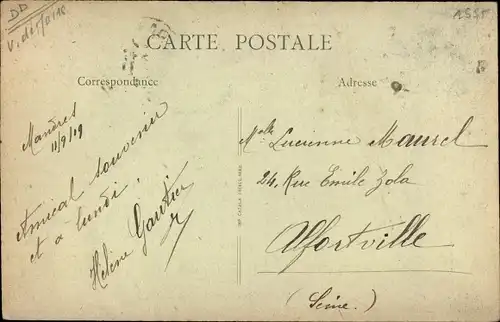 DD
1585
CARTE POSTALE
Correspondance
Adresse
Mandres
11/9/19
Amical souvenir
et a lundi.
Hélène Gautier
Melle Lucienne Maurel
24, Rue Emile Zola
Alfortville
(Seine.)